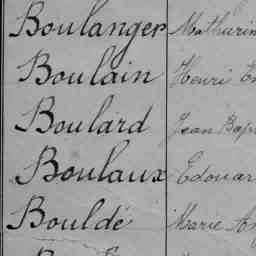 Boulanger Mathurin
Boulain Henri
Boulard Jean
Boulaux Edouar
Bouldé Marie